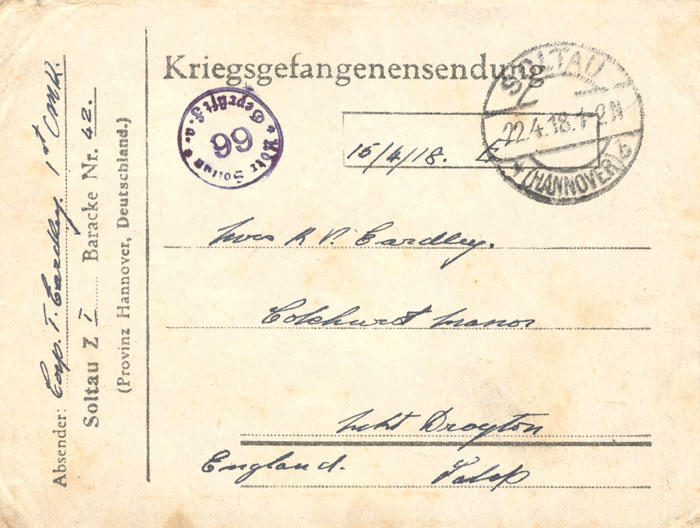 Kriegsgefangenensendung
SOLTAU
22.4.18.
(HANNOVER)
Geprüft F. a.
66
Soltau
15/4/18. E
Mrs R V. Eardley.
Eckhurst Manor
Mkt Drayton
England. Salop
Absender: Corp. T. Eardley. 1st
Soltau Z I Baracke Nr. 42.
(Provinz Hannover, Deutschland.)